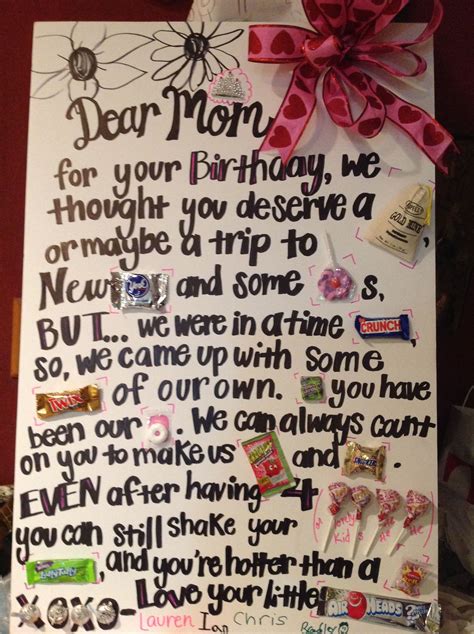 Dear Mom
for your Birthday, we
thought you deserve a GOLD MINE
or maybe a trip to
New York and some s,
BUT... we were in a time CRUNCH
so, we came up with some
TWIX of our own. you have
been our . We can always count
on you to make us and SNICKERS .
EVEN after having 4
you can still shake your
LAFFY TAFFY, and you're hotter than a
XOXO- Love your little AIRHEADS
Lauren Ian Chris